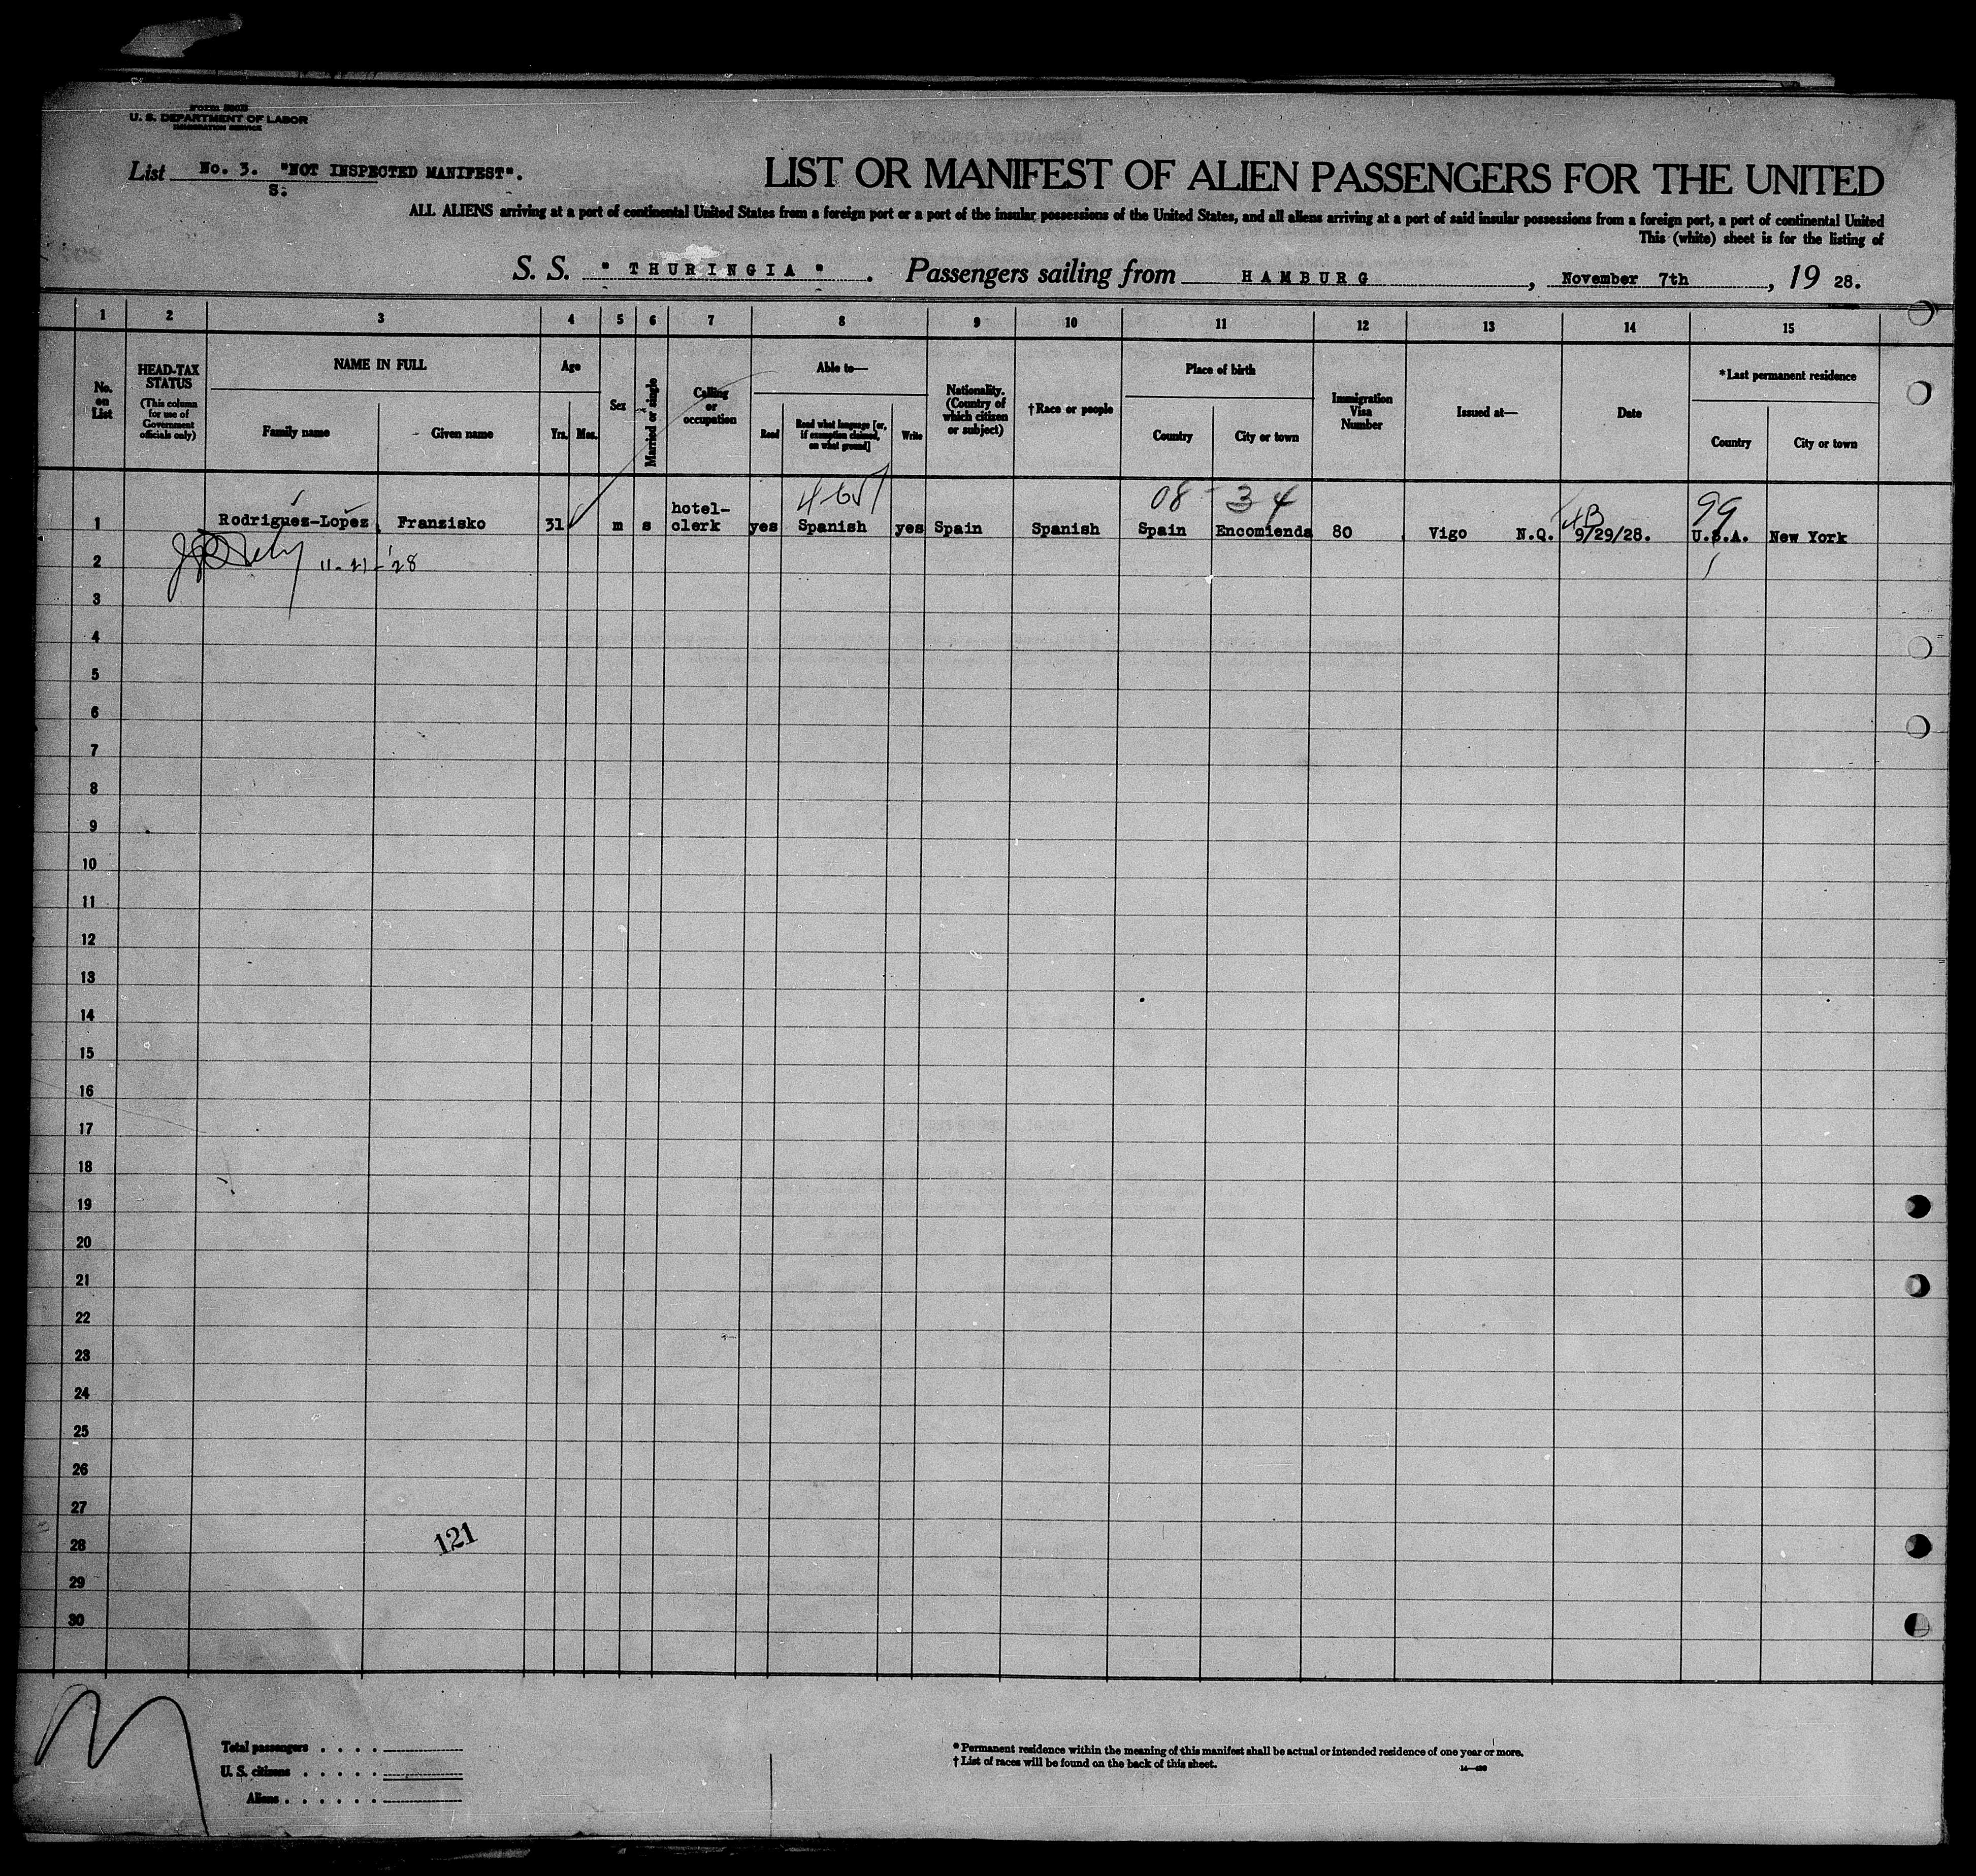 U. S. DEPARTMENT OF LABOR
IMMIGRATION SERVICE
List No. 3. "NOT INSPECTED MANIFEST".
S:
LIST OR MANIFEST OF ALIEN PASSENGERS FOR THE UNITED
ALL ALIENS arriving at a port of continental United States from a foreign port or a port of the insular possessions of the United States, and all aliens arriving at a port of said insular possessions from a foreign port, a port of continental United
This (white) sheet is for the listing of
S. S. " THURINGIA " . Passengers sailing from HAMBURG , November 7th , 19 28.
1 2 3 4 5 6 7 8 9 10 11 12 13 14 15
No. on List
HEAD-TAX STATUS
(This column for use of Government officials only)
NAME IN FULL
Family name Given name
Age
Yrs. Mos.
Sex
Married or single
Calling or occupation
Able to—
Read Read what language [or, if exemption claimed, on what ground] Write
Nationality. (Country of which citizen or subject)
†Race or people
Place of birth
Country City or town
Immigration Visa Number
Issued at—
Date
*Last permanent residence
Country City or town
08 - 34 99
1 Rodriguez-Lopez, Franzisko 31 m s hotel-clerk yes Spanish yes Spain Spanish Spain Encomienda 80 Vigo N.Q. 9/29/28. U.S.A. New York
11-21-'28
2
3
4
5
6
7
8
9
10
11
12
13
14
15
16
17
18
19
20
21
22
23
24
25
26
27
28
121
29
30
Total passengers . . . .
U. S. citizens . . . . .
Aliens . . . . . .
* Permanent residence within the meaning of this manifest shall be actual or intended residence of one year or more.
† List of races will be found on the back of this sheet.